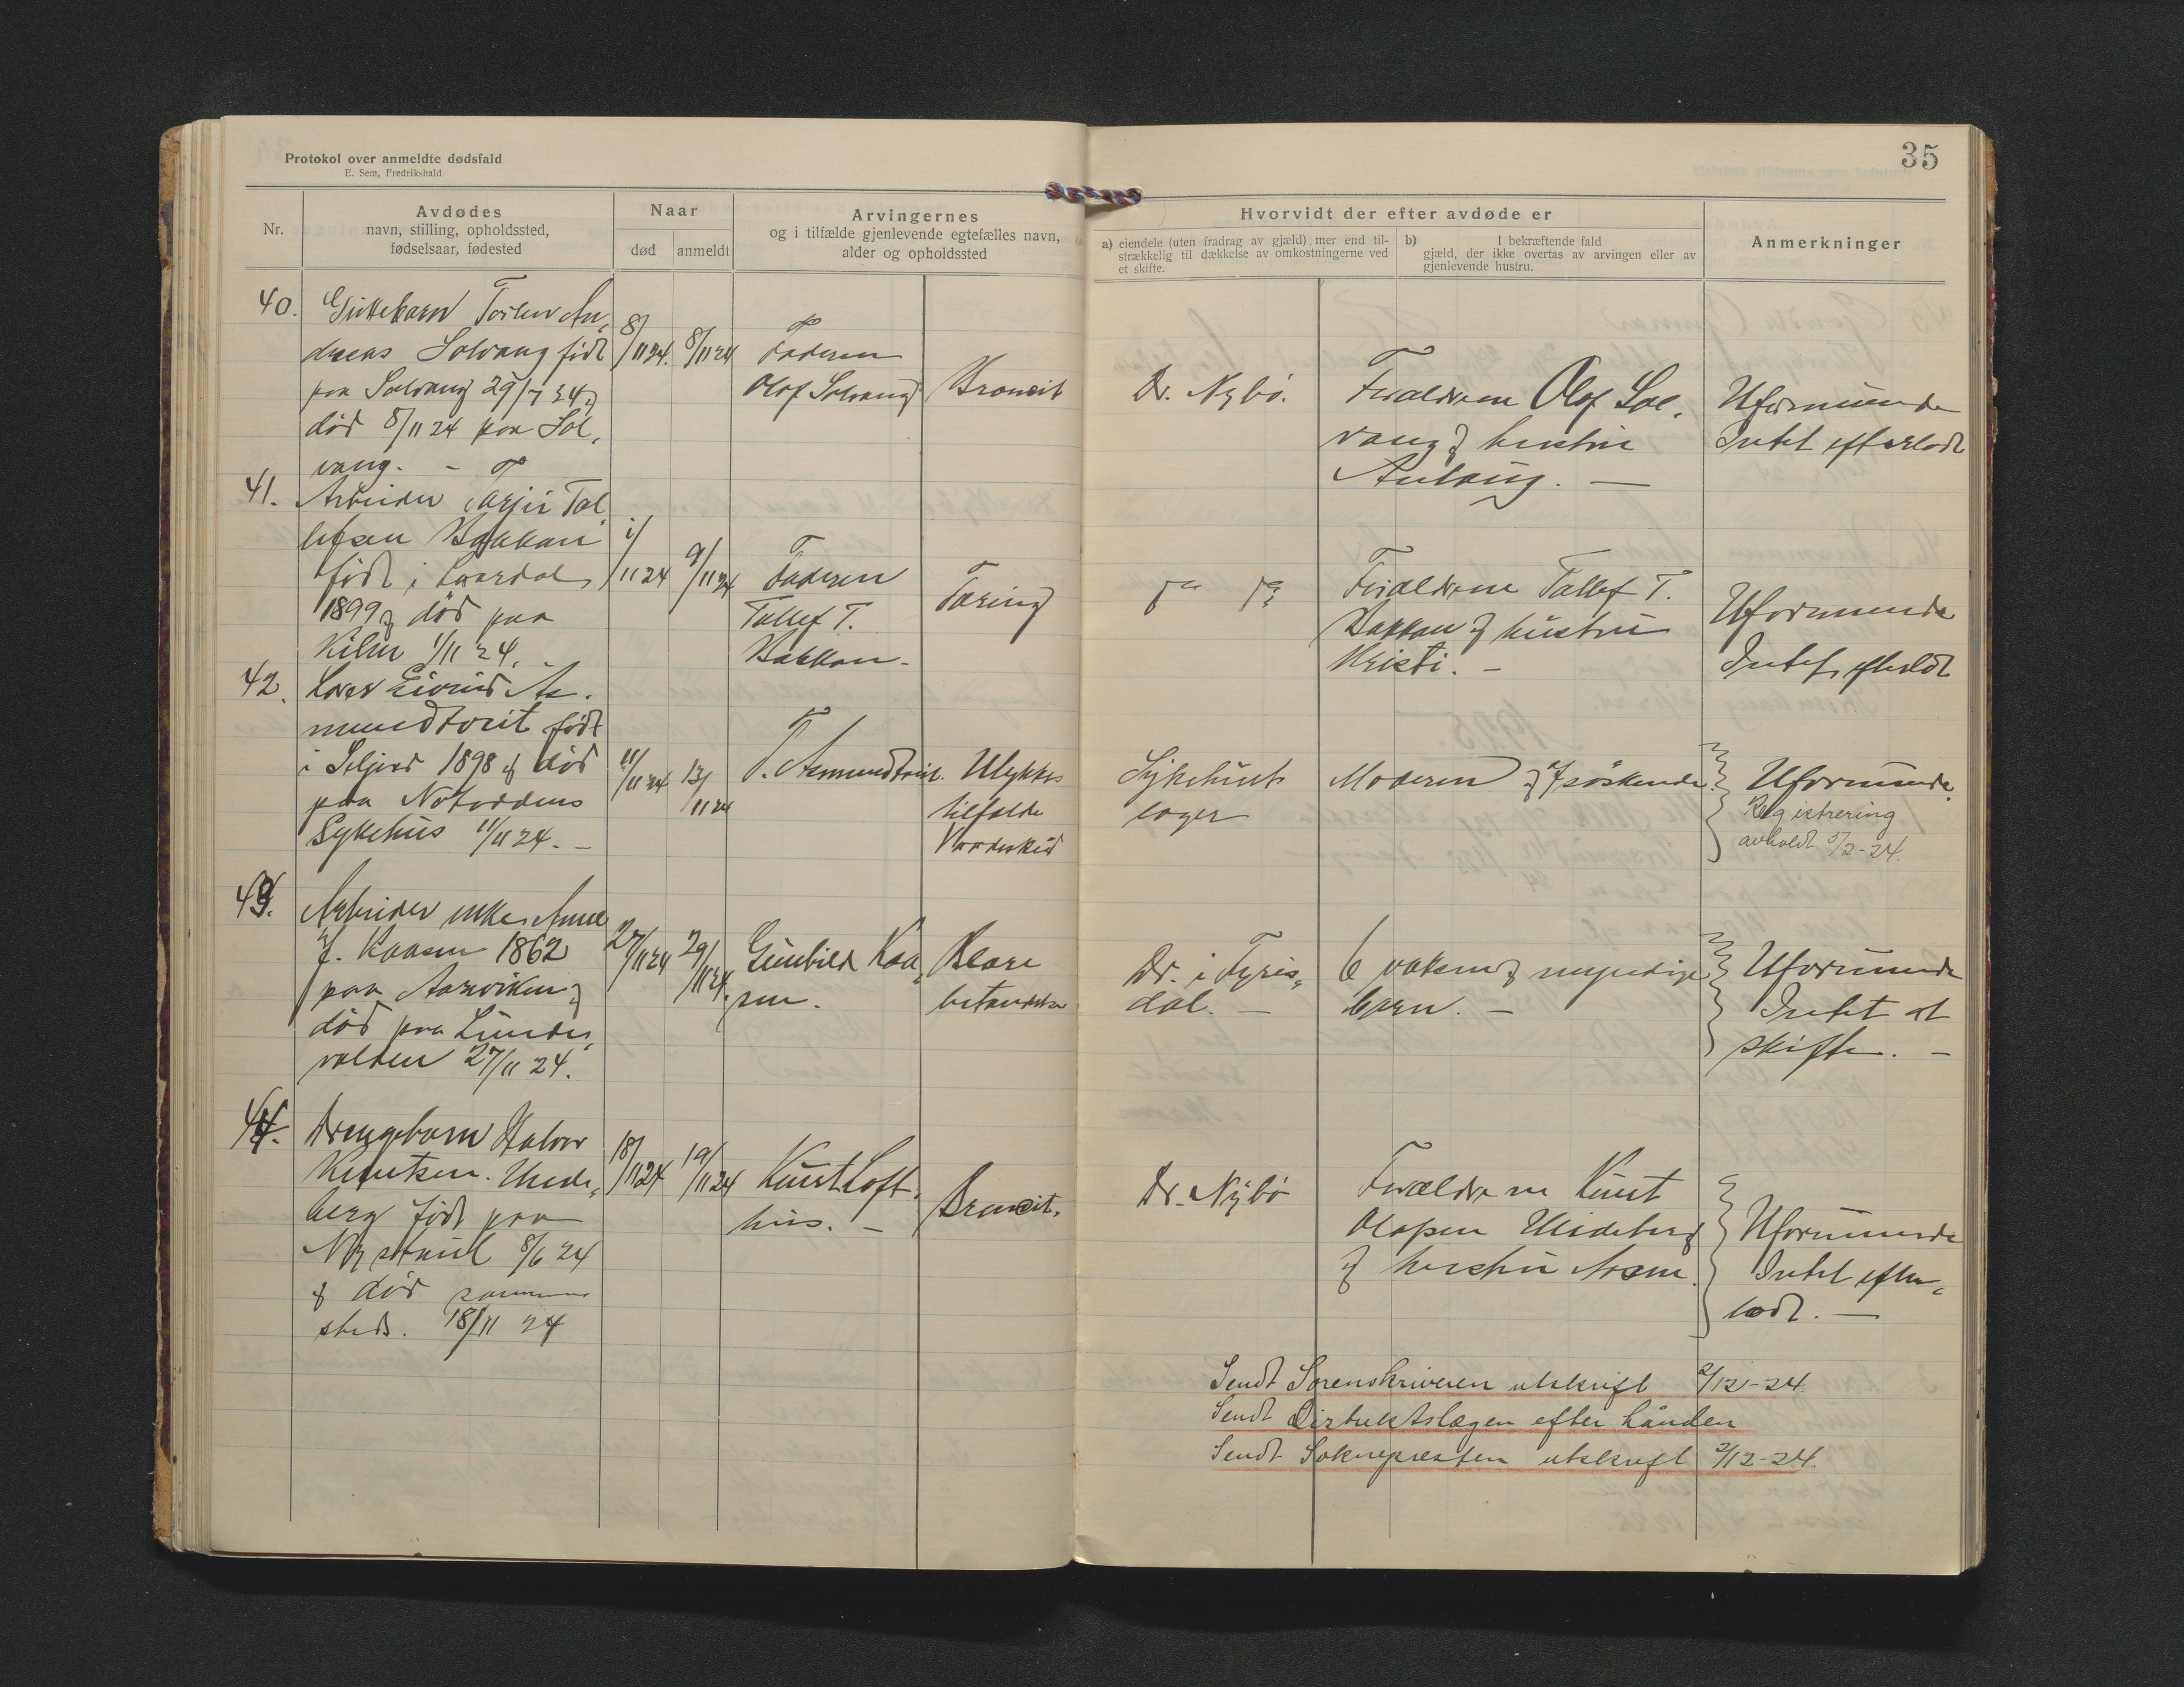 Protokol over anmeldte dødsfald
E. Sem, Fredrikshald
35
Nr.
Avdødes
navn, stilling, opholdssted,
fødselsaar, fødested
Naar
død
anmeldt
Arvingernes
og i tilfælde gjenlevende egtefælles navn,
alder og opholdssted
Hvorvidt der efter avdøde er
a) eiendele (uten fradrag av gjæld) mer end til-
strækkelig til dækkelse av omkostningerne ved
et skifte.
b) I bekræftende fald
gjæld, der ikke overtas av arvingen eller av
gjenlevende hustru.
Anmerkninger
40.
Guttebarn Torleiv An,
dreas Solvang født
paa Solvang 29/7 24 &
død 8/11 24 paa Sol,
vang. -
8/11 24.
8/11 24
Faderen
Olof Solvang
Broncit
Dr. Nybö.
Forældrene Olof Sol,
vang & hustru
Anlaug. -
Uformuende
Intet efterladt
41.
Arbeider Tarjei Tal,
lefsen Bakkan
født i Laardal
1899 & død paa
Kilen 1/11 24. -
1/11 24
9/11 24
Faderen
Tallef T.
Bakkan -
Tæring
do do
Forældrene Tallef T.
Bakkan & hustru
Kristi. -
Uformuende
Intet efterladt
42.
Eivind As,
mundtveit født
i Seljord 1898 & død
paa Notoddens
Sykehus 11/11 24. -
11/11 24
13/11 24
T. Asmundtveit.
Ulykkes
tilfælde
Vaadeskud
Sykehuset
læger
Moderen & 7 söskende.
Uformuende.
Registrering
avholdt 5/2-24.
43.
Arbeider enke Anne
J. Kaasen 1862
paa Aarviken &
død paa Lunde,
valden 27/11 24.
27/11 24
29/11 24.
Gunhild Kaa,
sen.
Blære
betændelse
Dr. i Fyris,
dal. -
6 voksne & myndige
børn. -
Uformuende
Intet at
skifte. -
44.
Drengebarn Halvor
Knutsen. Uvde,
berg født paa
Nystaul 8/6 24
& død samme
steds. 18/11 24
18/11 24
19/11 24
Knut Loft,
hus. -
Broncit.
Dr. Nybö
Forældrene Knut
Olavsen Uvdeberg
& hustru Aasne.
Uformuende
Intet efter,
ladt. -
Sendt Sorenskriveren utskrift 2/12-24
Sendt Distriktslægen efter hånden
Sendt Sokneprestfen utskrift 2/12-24.